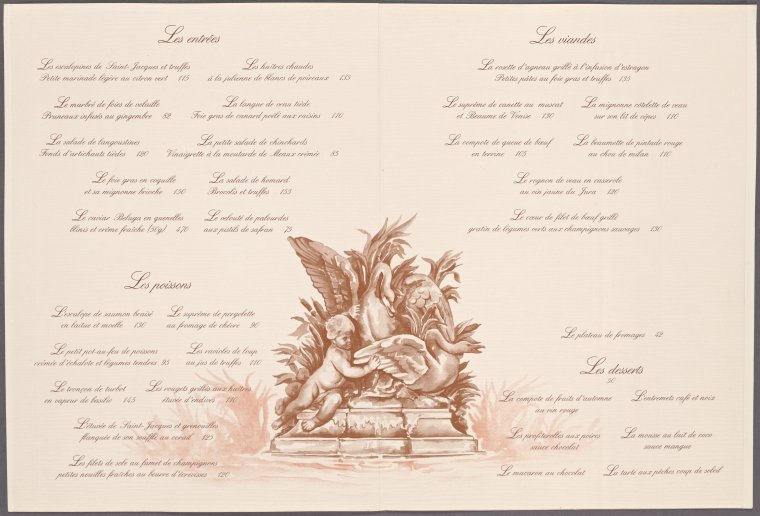 Les entrées
Les escalopines de Saint-Jacques et truffes
Petite marinade légère au citron vert 115
Les huîtres chaudes
à la julienne de blancs de poireaux 135
Le marbré de foies de volaille
Pruneaux infusés au gingembre 82
La langue de veau tiède
Foie gras de canard poêlé aux raisins 110
La salade de langoustines
Fonds d'artichauts tièdes 120
La petite salade de chinchards
Vinaigrette à la moutarde de Meaux crémée 85
Le foie gras en coquille
et sa mignonne brioche 150
La salade de homard
Brocolis et truffes 155
Le caviar Beluga en quenelles
blinis et crème fraîche (50g) 470
Le velouté de palourdes
aux pistils de safran 75
Les poissons
L'escalope de saumon braisé
en laitue et moelle 130
Le suprême de
au fromage de chèvre 90
Le petit pot-au-feu de poissons
crémée d'échalote et légumes tendres 95
Les ravioles de loup
au jus de truffes 110
Le tronçon de turbot
en vapeur de basilic 145
Les rougets grillés aux huîtres
étuvée d'endives 110
L'étuvée de Saint-Jacques et grenouilles
flanquée de son soufflé au corail 125
Les filets de sole au fumet de champignons
petites nouilles fraîches au beurre d'écrevisses 120
Les viandes
La rosette d'agneau grillé à l'infusion d'estragon
Petites pâtes au foie gras et truffes 135
Le suprême de canette au muscat
et Beaume de Venise 130
La mignonne côtelette de veau
sur son lit de cèpes 110
La compote de queue de bœuf
en terrine 105
La beaumette de pintade rouge
au chou de milan 110
Le rognon de veau en casserole
au vin jaune du Jura 120
Le cœur de filet de bœuf grillé
gratin de légumes verts aux champignons sauvages 130
Le plateau de fromages 42
Les desserts
50
La compote de fruits d'automne
au vin rouge
L'entremets café et noix
Les profiterolles aux poires
sauce chocolat
La mousse au lait de coco
sauce mangue
Le macaron au chocolat
La tarte aux pêches coup de soleil